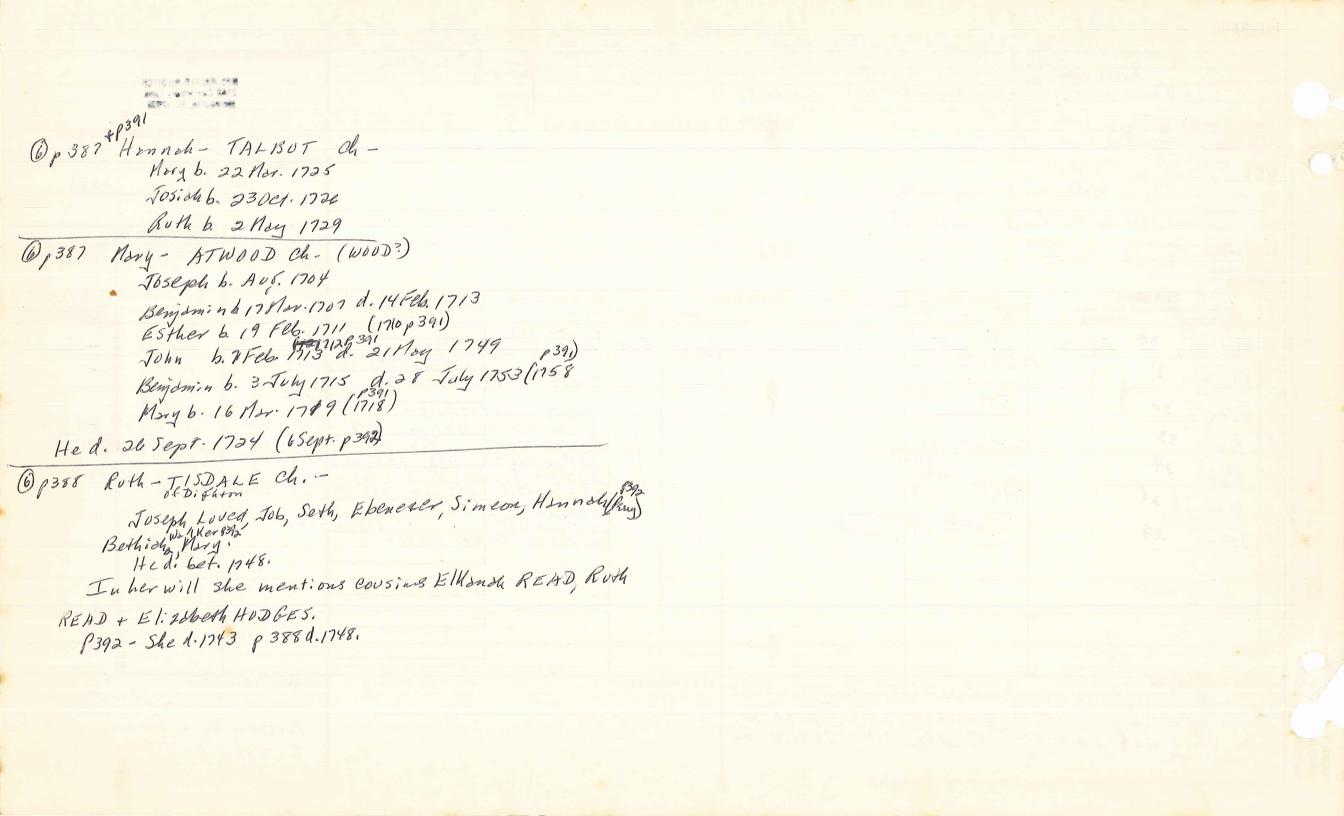 ⑥ p 387 + p391 Hannah - TALBUT Ch -
Mary b. 22 Mar. 1725
Josiah b. 23 Oct. 1726
Ruth b. 2 May 1729
⑥ p 387 Mary - ATWOOD Ch. - (WOOD?)
Joseph b. Aug. 1704
Benjamin b 17 Mar. 1707 d. 14 Feb. 1713
Esther b. 19 Feb. 1711 (1710 p 391)
John b. 8 Feb. 1713 (1712 p 391) d. 21 May 1749
Benjamin b. 3 July 1715 d. 28 July 1753 (1758 p 391)
Mary b. 16 Mar. 1719 (1718 p391)
He d. 26 Sept. 1724 (6 Sept. p 392)
⑥ p388 Ruth - TISDALE Ch. -
of Dighton
Joseph, Loved, Job, Seth, Ebenezer, Simeon, Hannah (p392
Bethiah, Mary.
He d. bet. 1748.
In her will she mentions cousins Elkanah READ, Ruth
READ + Elizabeth HODGES.
P392 - She d. 1743 p 388 d. 1748.